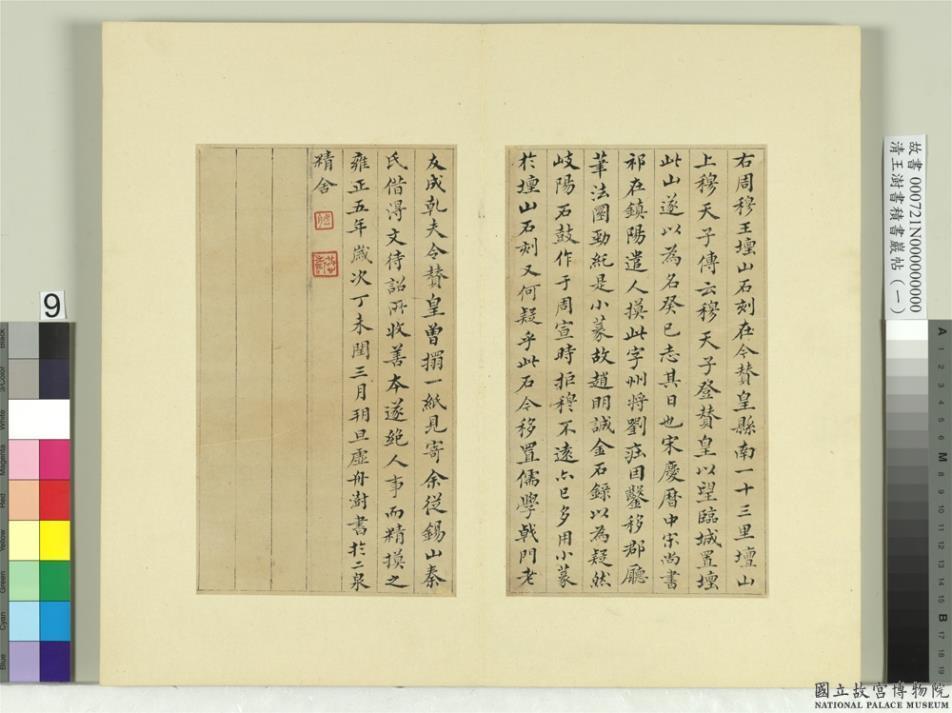 右周穆王壇山石刻在今賛皇縣南一十三里壇山
上穆天子傳云穆天子登賛皇以望臨城置壇
此山遂以為名癸巳志其日也宋慶曆中宋尚書
祁在鎮陽遣人摸此字州將劉莊因鑿移郡廳
筆法圎勁純是小篆故趙明誠金石錄以為疑然
岐陽石鼓作于周宣時拒穆不遠亦已多用小篆
於壇山石刻又何疑乎此石今移置儒學戟門老
友成乹夫令賛皇曾搨一紙見寄余從錫山秦
氏借得文待詔所收善本遂絶人事而精摸之
雍正五年歲次丁未閏三月朔旦虛舟澍書於二泉
精舍
故書 000721N000000000
清王澍書積書巖帖（一）
9
國立故宮博物院
NATIONAL PALACE MUSEUM
Black
3/Color
White
Magenta
Red
Yellow
Green
Cyan
Blue
A
1
2
3
4
5
6
M
8
9
10
11
12
13
14
15
B
17
18
19